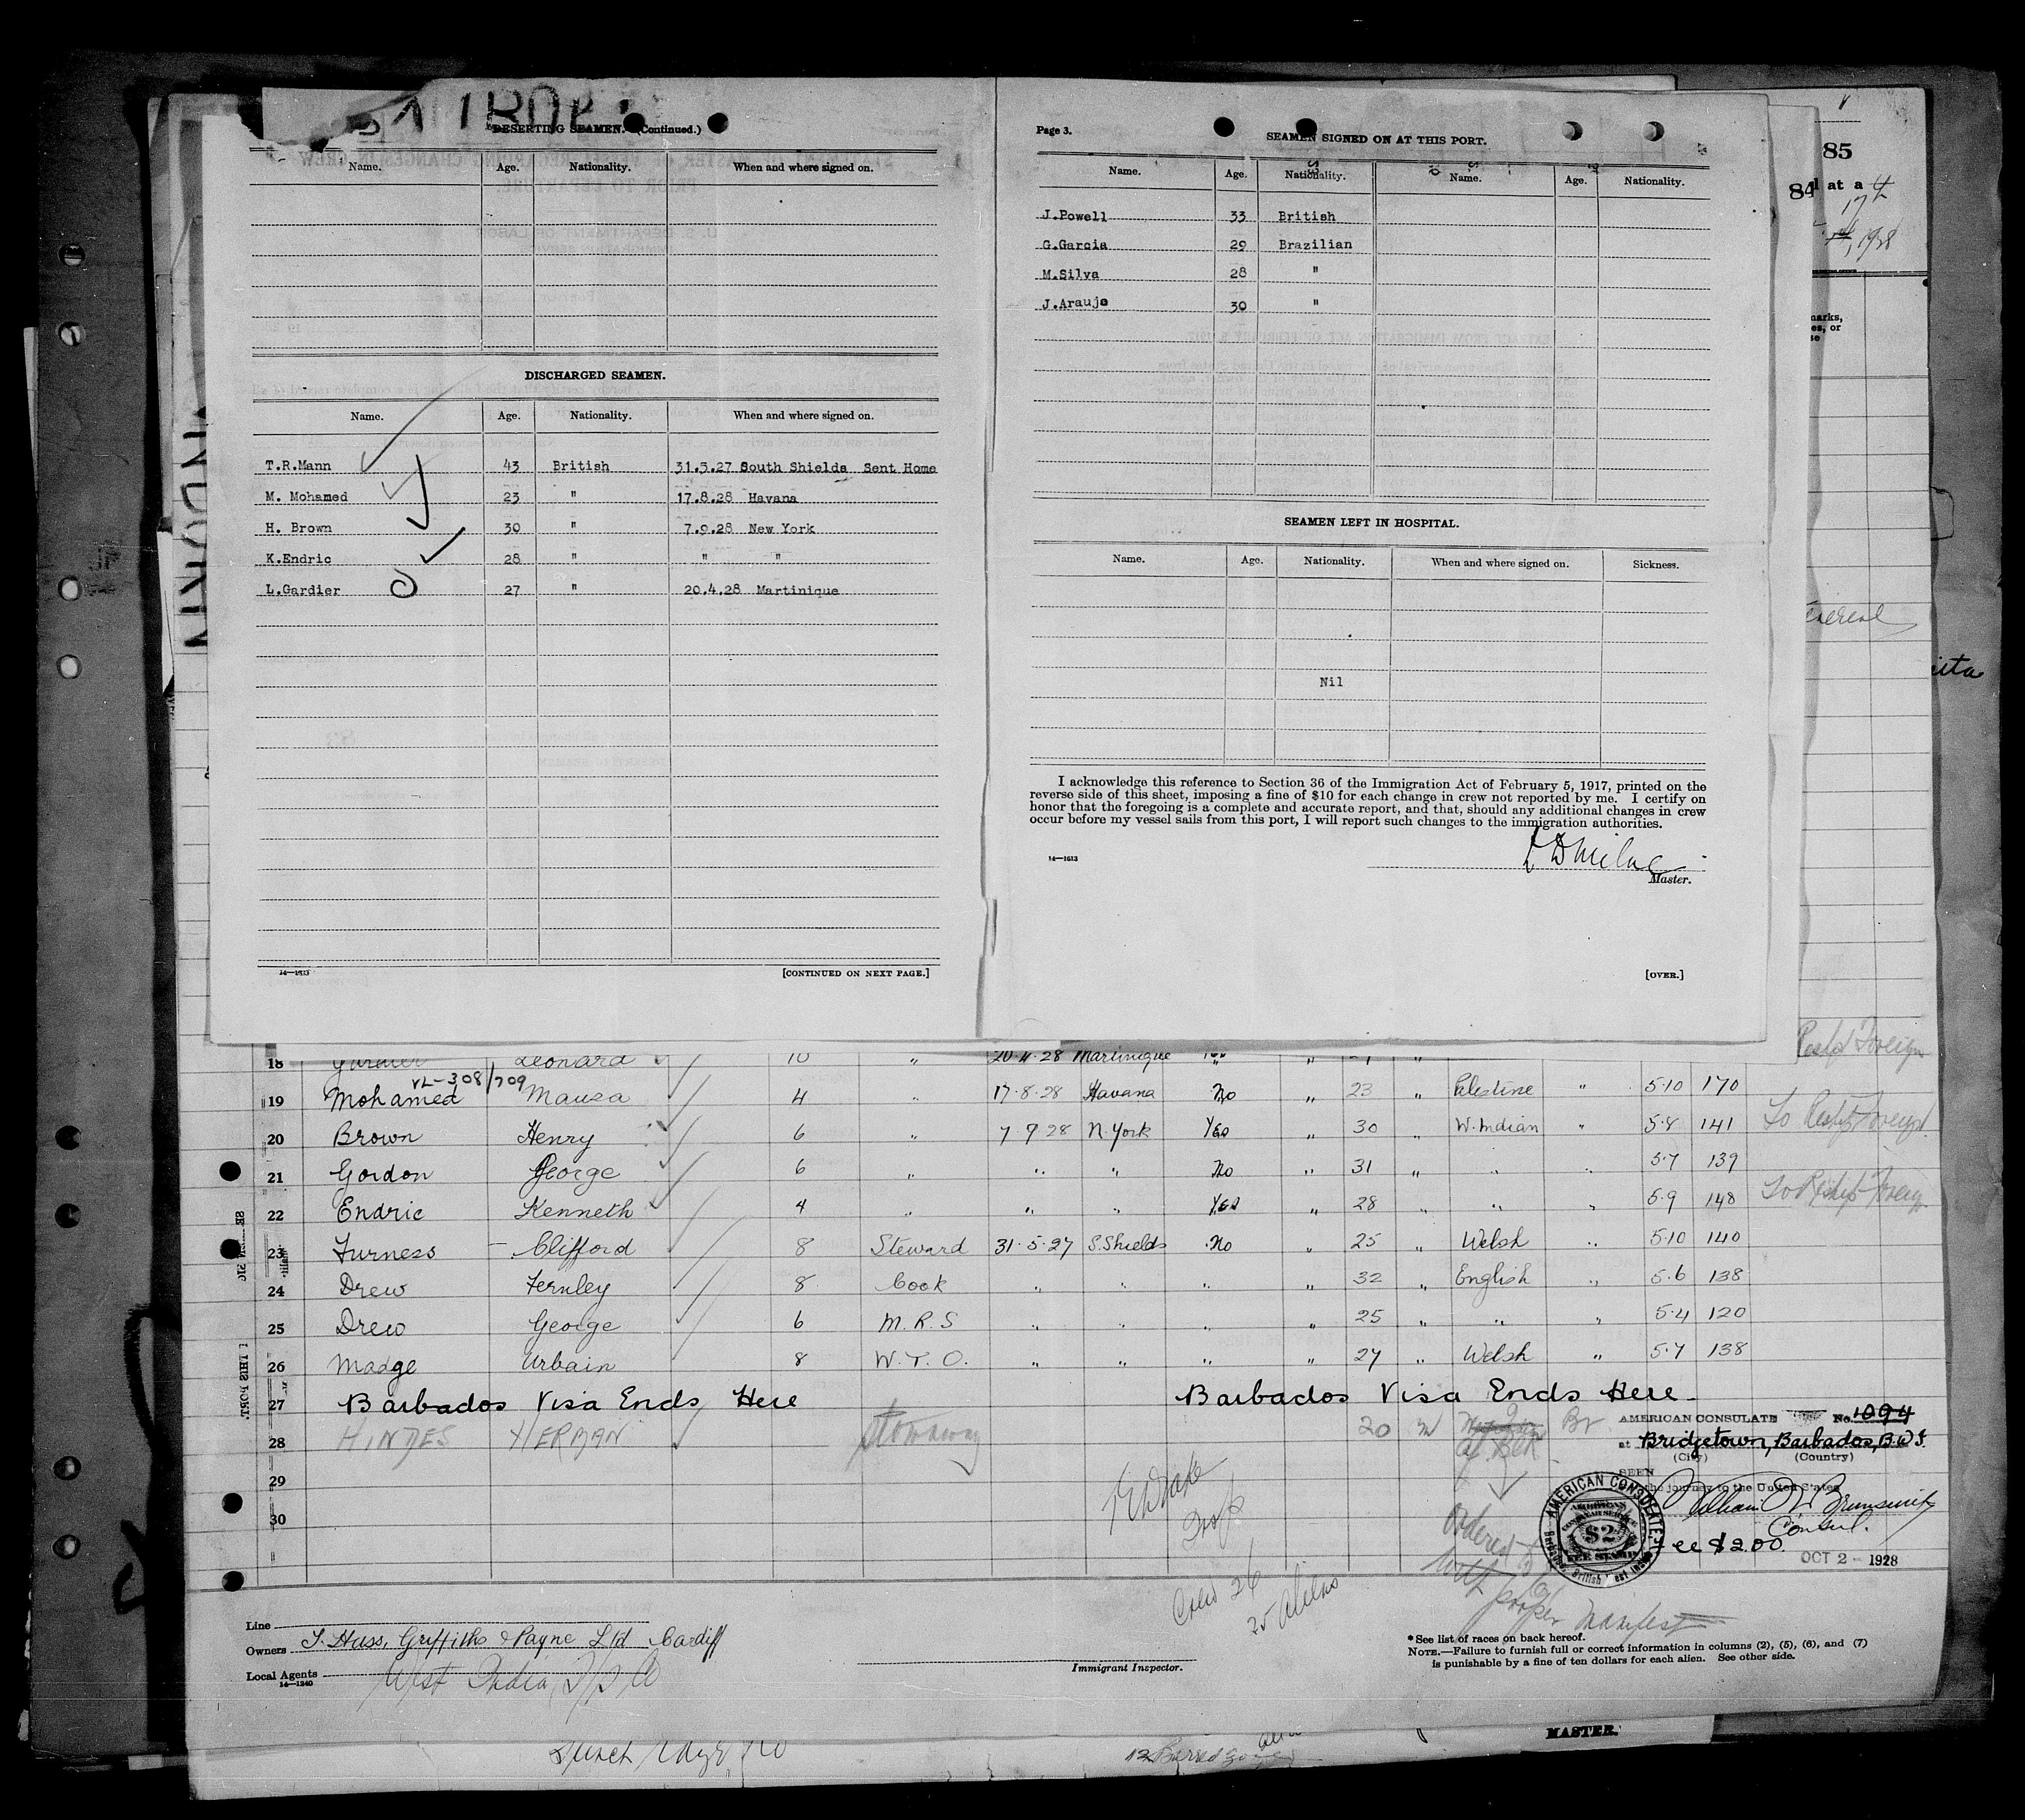 DESERTING SEAMEN. (Continued.)
Name. Age. Nationality. When and where signed on.
DISCHARGED SEAMEN.
Name. Age. Nationality. When and where signed on.
T.R.Mann 43 British 31.5.27 South Shields Sent Home
M. Mohamed 23 " 17.8.28 Havana
H. Brown 30 " 7.9.28 New York
K.Endric 28 " " "
L.Gardier 27 " 20.4.28 Martinique
14—1613
[CONTINUED ON NEXT PAGE.]
Page 3.
SEAMEN SIGNED ON AT THIS PORT.
Name. Age. Nationality. Name. Age. Nationality.
J.Powell 33 British
G.Garcia 29 Brazilian
M.Silva 28 "
J.Araujo 30 "
SEAMEN LEFT IN HOSPITAL.
Name. Age. Nationality. When and where signed on. Sickness.
Nil
I acknowledge this reference to Section 36 of the Immigration Act of February 5, 1917, printed on the
reverse side of this sheet, imposing a fine of $10 for each change in crew not reported by me. I certify on
honor that the foregoing is a complete and accurate report, and that, should any additional changes in crew
occur before my vessel sails from this port, I will report such changes to the immigration authorities.
14—1613
Master.
[OVER.]
85
84
at a
17th
1928
18 Gardier Leonard 10 " 20.4.28 Martinique
VL-308/709
19 Mohamed 4 " 17.8.28 Havana No " 23 " Palestine " 5.10 170
20 Brown Henry 6 " 7.9.28 N.York Yes " 30 " W.Indian " 5.8 141 To Reship Foreign
21 Gordon George 6 " " " No " 31 " " " 5.7 139
22 Endric Kenneth 4 " " " Yes " 28 " " " 5.9 148 To Reship Foreign
23 Furness Clifford 8 Steward 31.5.27 S.Shields No " 25 " Welsh " 5.10 140
24 Drew Fernley 8 Cook " " " " 32 " English " 5.6 138
25 Drew George 6 M.R.S " " " " 25 " " " 5.4 120
26 Madge Urbain 8 W.T.O. " " " " 27 " Welsh " 5.7 138
27 Barbados Visa Ends Here Barbados Visa Ends Here
28 HINDES HERBAN Stowaway 20 M Af. Blk Br
29
30
AMERICAN CONSULATE No. 1094
at Bridgetown, Barbados, B.W.I.
(City) (Country)
SEEN
the journey to the United States
William
Consul.
Fee $2.00
OCT 2 - 1928
AMERICAN CONSULATE
$2
FEE STAMP
Ordered
with
proper Manifest
Crew 26
25 Aliens
Line
Owners Griffiths & Payne Ltd Cardiff
Local Agents West India S/S Co
14—1240
Immigrant Inspector.
* See list of races on back hereof.
NOTE.—Failure to furnish full or correct information in columns (2), (5), (6), and (7)
is punishable by a fine of ten dollars for each alien. See other side.
MASTER.